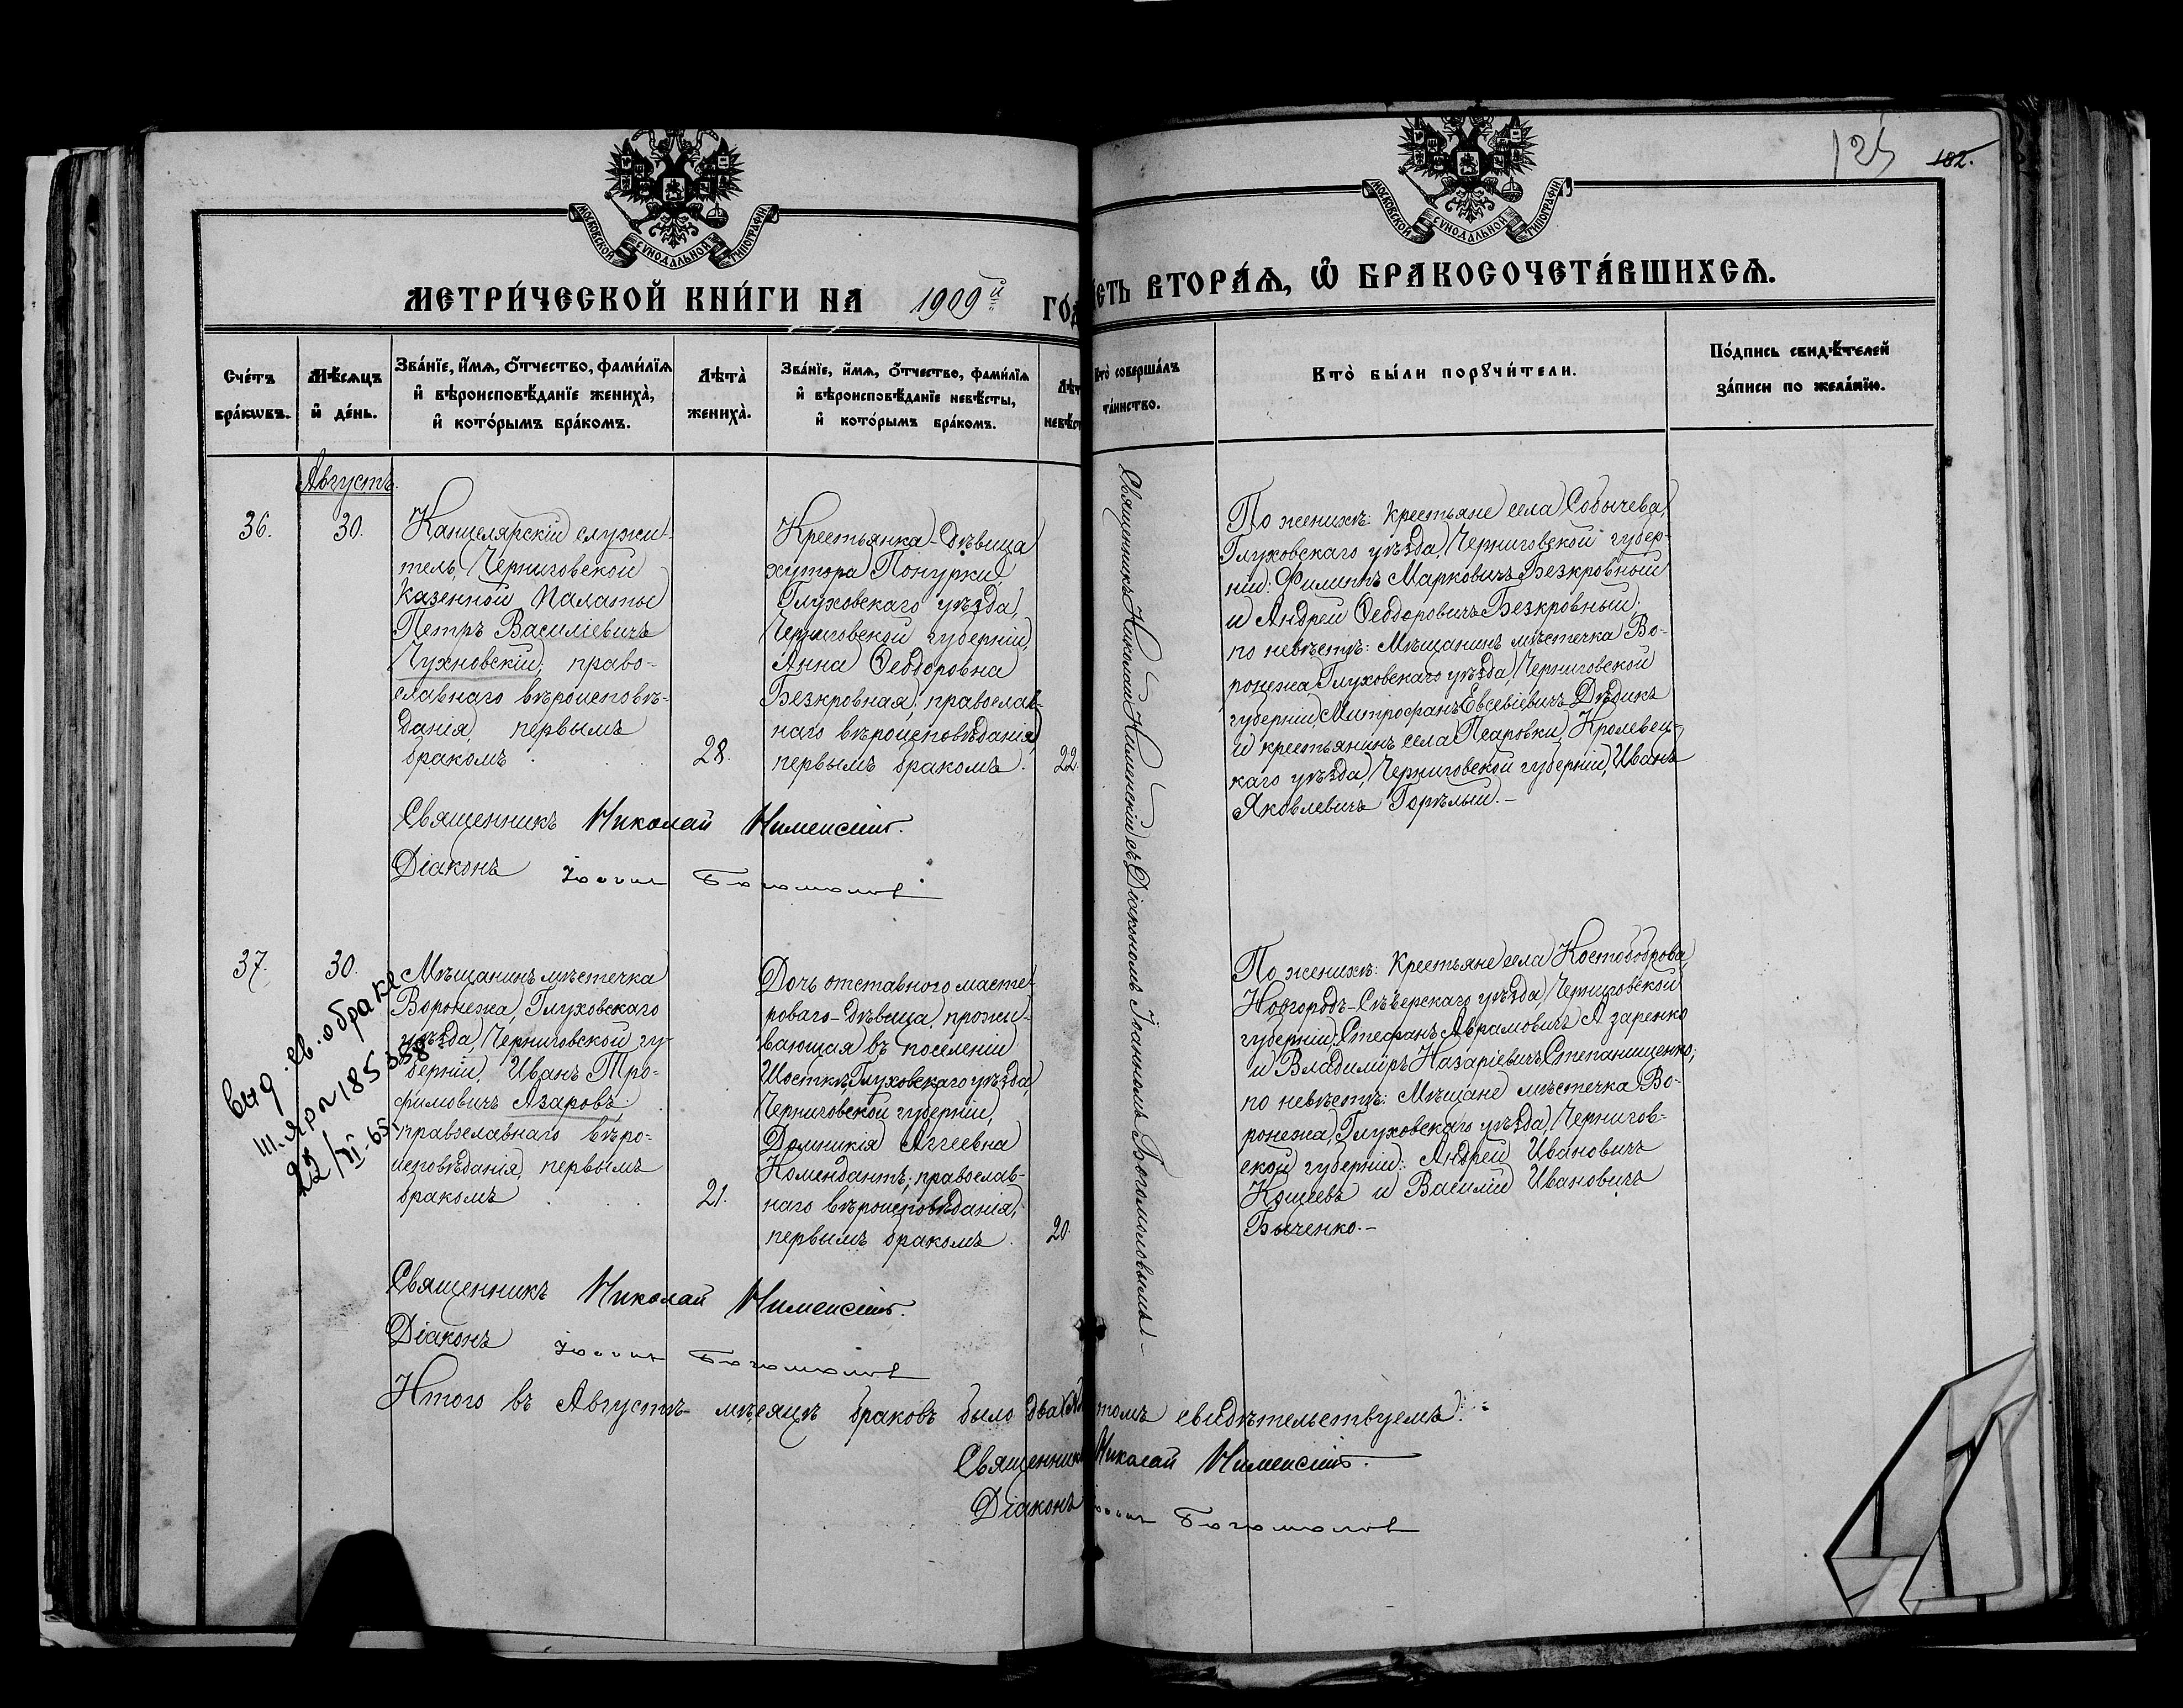 125 182.
МОСКОВСКОЙ СѴНОДАЛЬНОЙ ТИПОГРАФІИ
МОСКОВСКОЙ СѴНОДАЛЬНОЙ ТИПОГРАФІИ
МЕТРИ́ЧЕСКОЙ КНИ́ГИ НА 1909й ГО́Д
СТЬ ВТОРА́Ѧ, Ѽ БРАКОСОЧЕТА́ВШИХСѦ.
Сче́тъ
бра́кѡвъ.
Мѣ́сѧцъ
и҆ де́нь.
Зва́нїе, и҆́мѧ, ѻ҆́тчество, фами́лїѧ
и҆ вѣроисповѣ́данїе жениха̀,
и҆ кото́рымъ бра́комъ.
Лѣта̀
жениха̀.
Зва́нїе, и҆́мѧ, ѻ҆́тчество, фами́лїѧ
и҆ вѣроисповѣ́данїе невѣ́сты,
и҆ кото́рымъ бра́комъ.
Лѣт
невѣ́ст
Кто̀ соверша́лъ
та́инство.
Кто̀ бы́ли порꙋчи́тели.
По́дпись свидѣ́телей
за́писи по жела́нїю.
Августъ.
36.
30.
Канцелярскій служи-
тель Черниговской
Казенной Палаты
Петръ Василіевичъ
Чухновскій, право-
славнаго вѣроисповѣ-
данія, первымъ
бракомъ
28.
Крестьянка-дѣвица
хутора Понурки,
Глуховскаго уѣзда,
Черниговской губерніи,
Анна Ѳеодоровна
Безкровная; православ-
наго вѣроисповѣданія,
первымъ бракомъ.
22.
Священникъ Николай Кименскій съ Діакономъ Іоанномъ Богомоловымъ.
По женихѣ: крестьяне села Собычева,
Глуховскаго уѣзда, Черниговской губер-
ніи: Филиппъ Марковичъ Безкровный
и Андрей Ѳеодоровичъ Безкровный;
по невѣстѣ: Мѣщанинъ мѣстечка Во-
ронежа Глуховскаго уѣзда, Черниговской
губерніи, Митрофанъ Евсевіевичъ Дѣдикъ
и крестьянинъ села Псаровки, Кролевец-
каго уѣзда, Черниговской губерніи, Иванъ
Яковлевичъ Горѣлый.-
Священникъ Николай
Діаконъ Іоаннъ Богомоловъ
37.
30.
Мѣщанинъ мѣстечка
Воронежа, Глуховскаго
уѣзда, Черниговской гу-
берніи, Иванъ Тро-
фимовичъ Азаровъ,
православнаго вѣро-
исповѣданія, первымъ
бракомъ
21.
выд. св. о браке
185358
22/XI-65.
Дочь отставного масте-
роваго-дѣвица, прожи-
вающая въ поселеніи
Шосткѣ, Глуховскаго уѣзда,
Черниговской губерніи,
Домникія Аггеевна
Комендантъ; православ-
наго вѣроисповѣданія,
первымъ бракомъ.
20.
По женихѣ: Крестьяне села Костобоброва,
Новгородъ-Сѣверскаго уѣзда, Черниговской
губерніи: Стефанъ Аврамовичъ Азаренко
и Владиміръ Назаріевичъ Степанищенко;
по невѣстѣ: Мѣщане мѣстечка Во-
ронежа, Глуховскаго уѣзда, Чернигов-
ской губерніи: Андрей Ивановичъ
Кощеевъ и Василій Ивановичъ
Быченко.-
Священникъ Николай
Діаконъ Іоаннъ Богомоловъ
Итого въ Августѣ мѣсяцѣ браковъ было два томъ свидѣтельствуемъ:
Священникъ Николай
Діаконъ Іоаннъ Богомоловъ